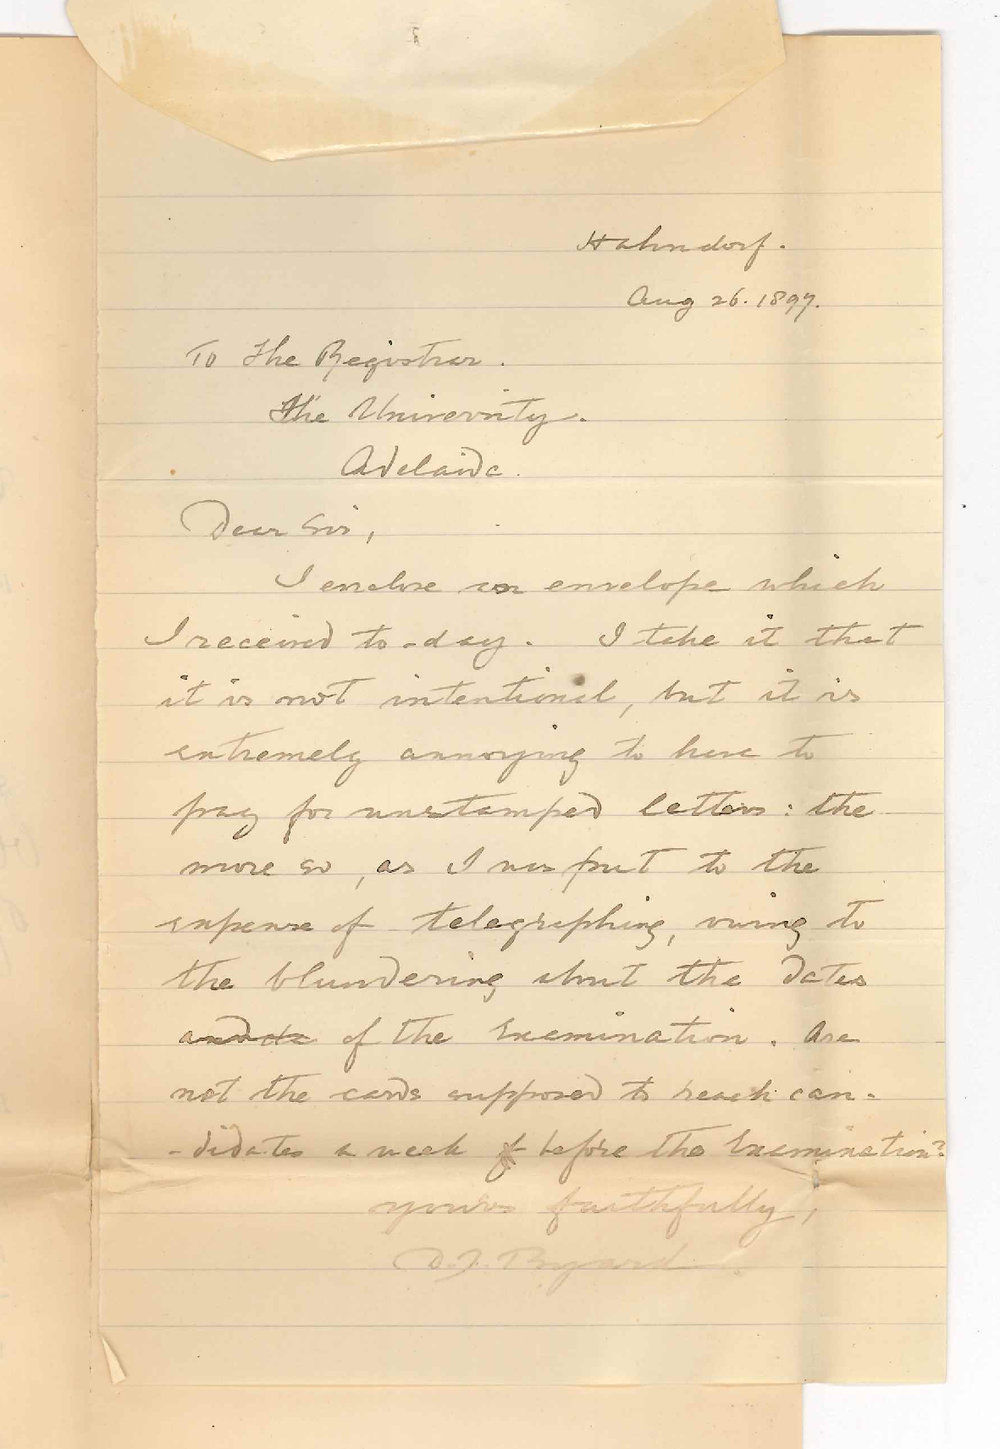 Hahndorf.
Aug 26. 1897.
To The Registrar.
The University.
Adelaide.
Dear Sir,
I enclose an envelope which
I received to-day. I take it that
it is not intentional, but it is
extremely annoying to have to
pay for unstamped letters: the
more so, as I was put to the
expense of telegraphing, owing to
the blundering about the dates
of the Examination. Are
not the cards supposed to reach can-
-didates a week before the Examination?
yours faithfully,
D.J. Byard.